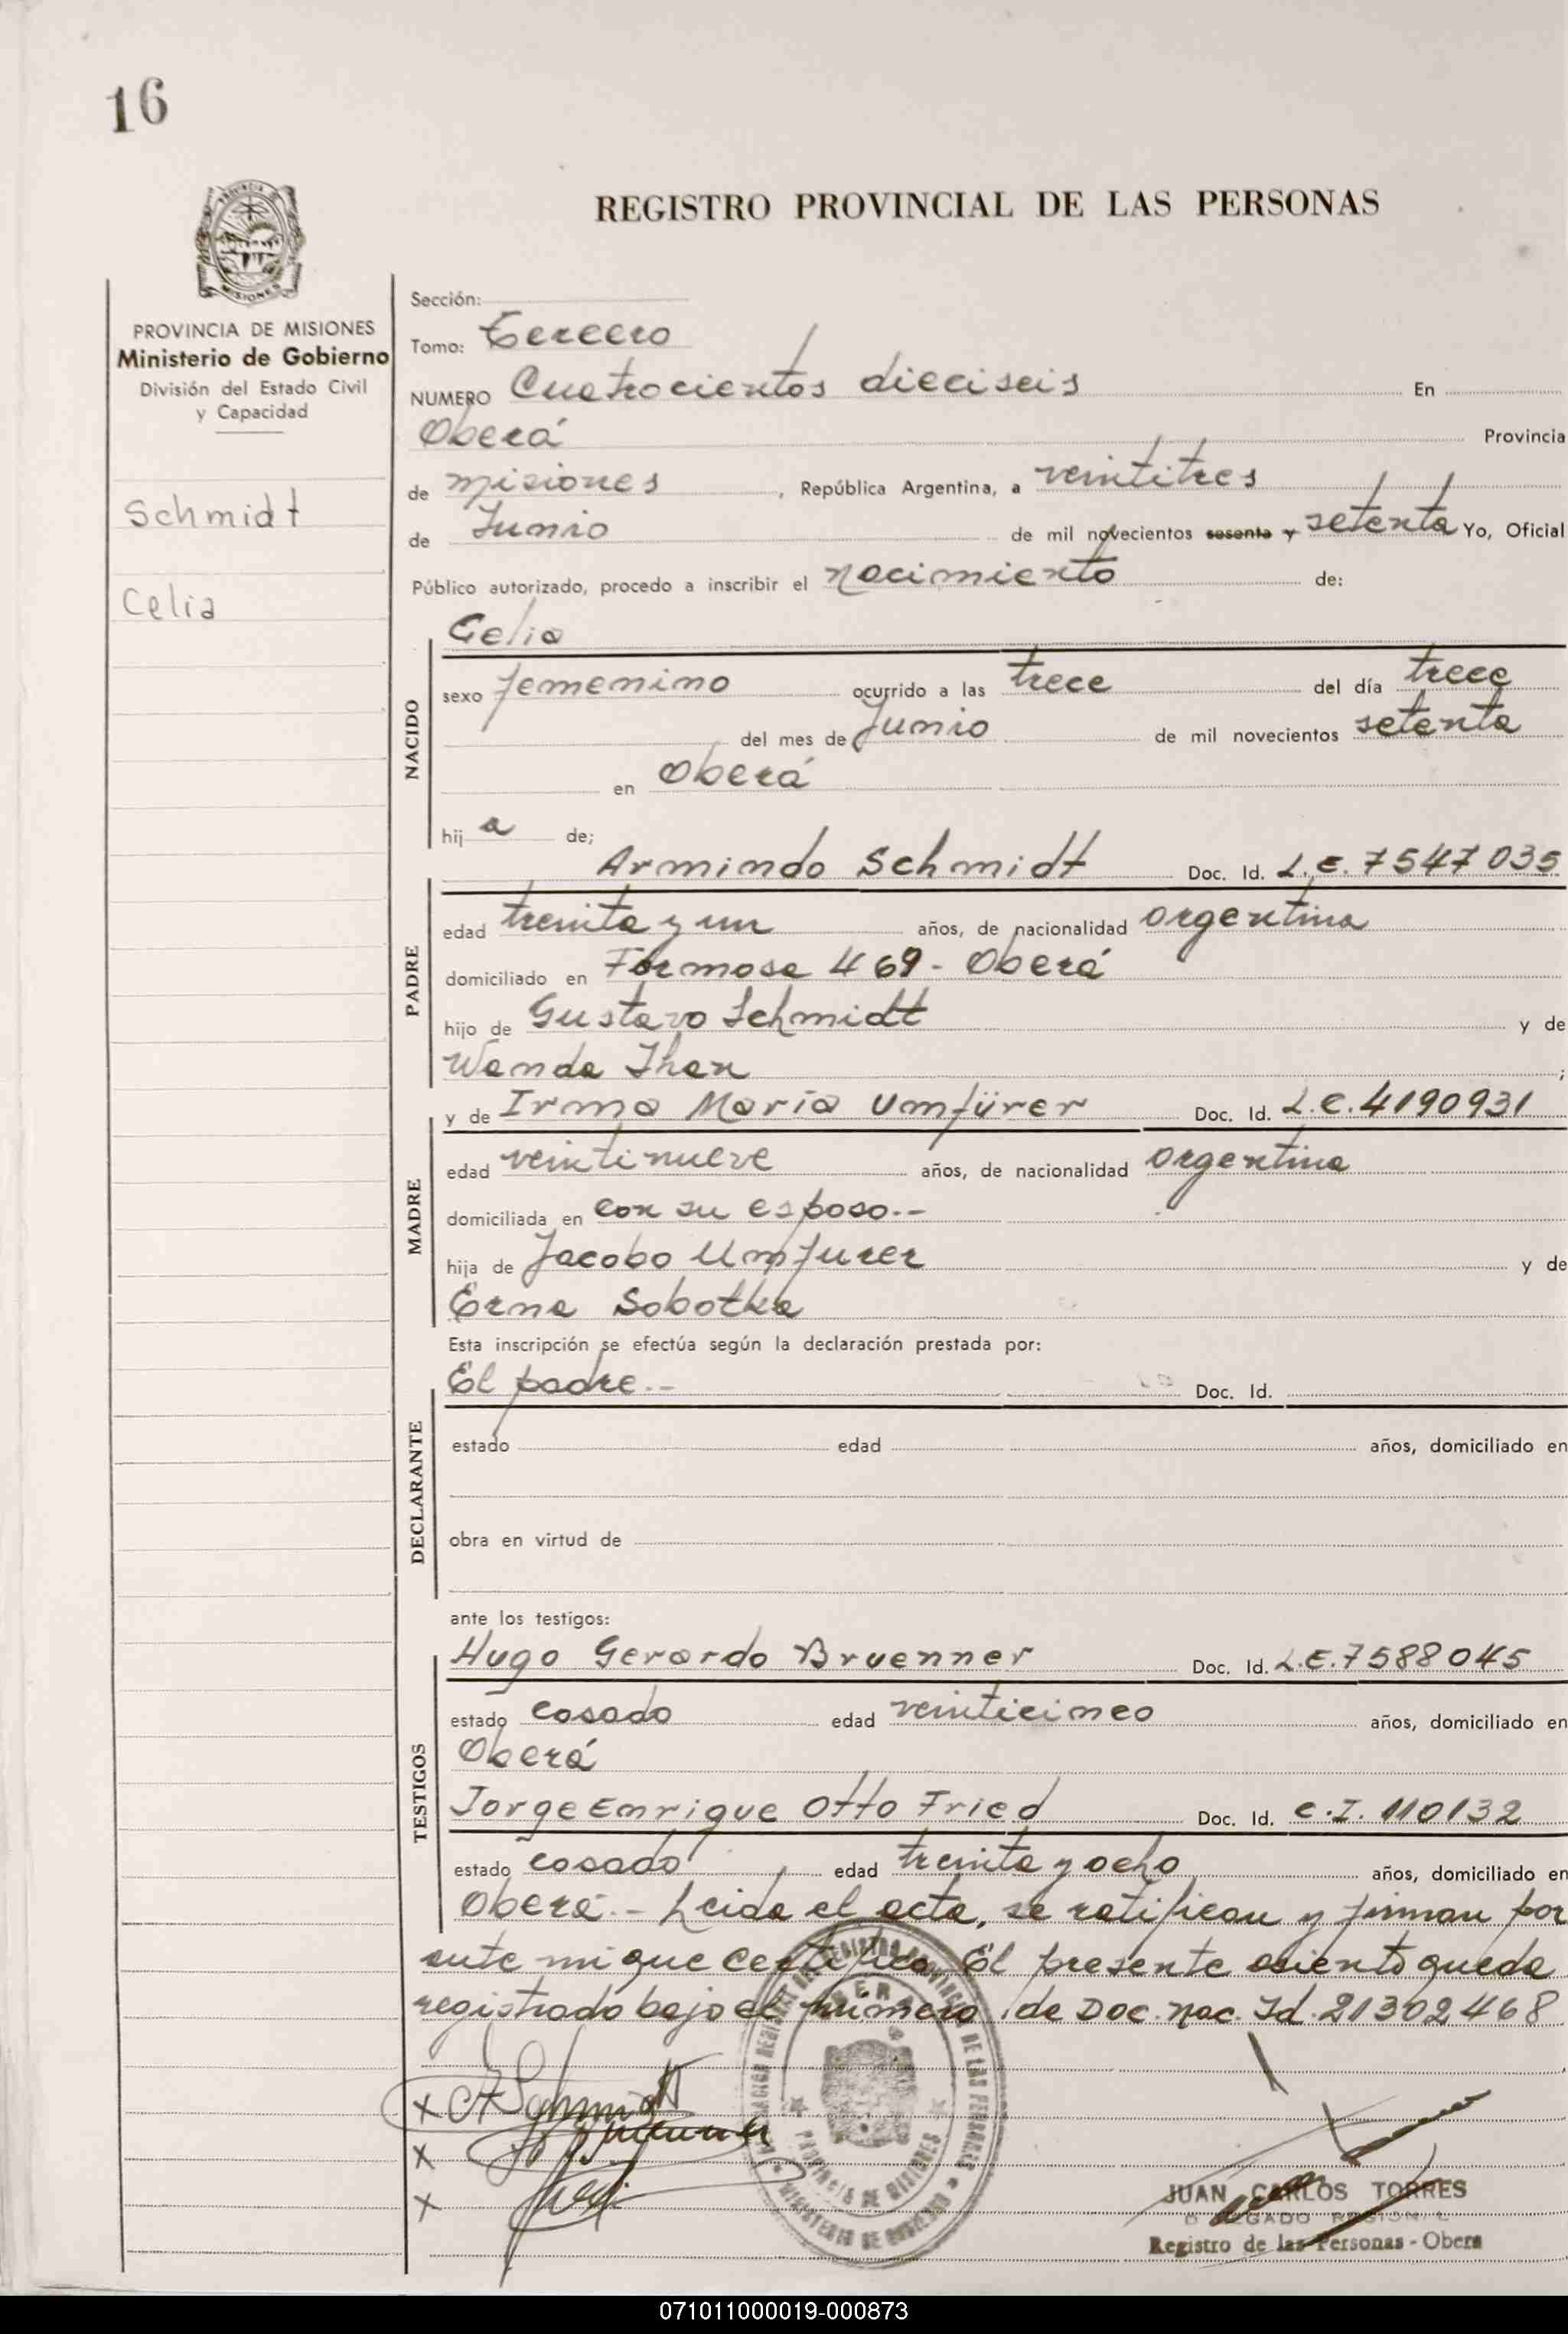 16
REGISTRO PROVINCIAL DE LAS PERSONAS
PROVINCIA DE MISIONES
Ministerio de Gobierno
División del Estado Civil
y Capacidad
Schmidt
Celia
Sección:
Tomo: Tercero
NUMERO Cuatrocientos dieciseis En
Oberá Provincia
de misiones, República Argentina, a veintitres
de Junio de mil novecientos sesenta y setenta Yo, Oficial
Público autorizado, procedo a inscribir el nacimiento de:
Celia
NACIDO
sexo femenino ocurrido a las trece del día trece
del mes de Junio de mil novecientos setenta
en Oberá
hij a de;
Armindo Schmidt Doc. Id. L.E. 7547035
PADRE
edad treinta y un años, de nacionalidad argentina
domiciliado en Formosa 469 - Oberá
hijo de Gustavo Schmidt y de
Wanda Ihan ;
y de Irma María Umfürer Doc. Id. L.C. 4190931
MADRE
edad veintinueve años, de nacionalidad argentina
domiciliada en con su esposo.-
hija de Jacobo Umfurer y de
Erna Sobotka
Esta inscripción se efectúa según la declaración prestada por:
El padre.- Doc. Id.
DECLARANTE
estado edad años, domiciliado en
obra en virtud de
ante los testigos:
Hugo Gerardo Bruenner Doc. Id. L.E. 7588045
TESTIGOS
estado casado edad veinticinco años, domiciliado en
Oberá
Jorge Enrique Otto Fried Doc. Id. C.I. 110132
estado casado edad treinta y ocho años, domiciliado en
Oberá.- Leida el acta, se ratifican y firman por
ante mi que certifico. El presente asiento queda
registrado bajo el número de Doc. Nac. Id. 21302468
x A Schmidt
x
x
PROVINCIA DE MISIONES
MINISTERIO DE GOBIERNO
JUAN CARLOS TORRES
DELEGADO REGIONAL
Registro de las Personas - Obera
071011000019-000873